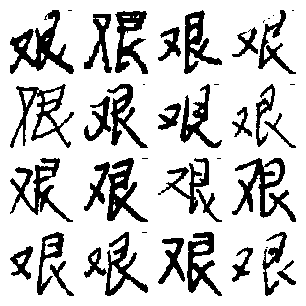 艰艰艰艰
艰艰艰艰
艰艰艰艰
艰艰艰艰